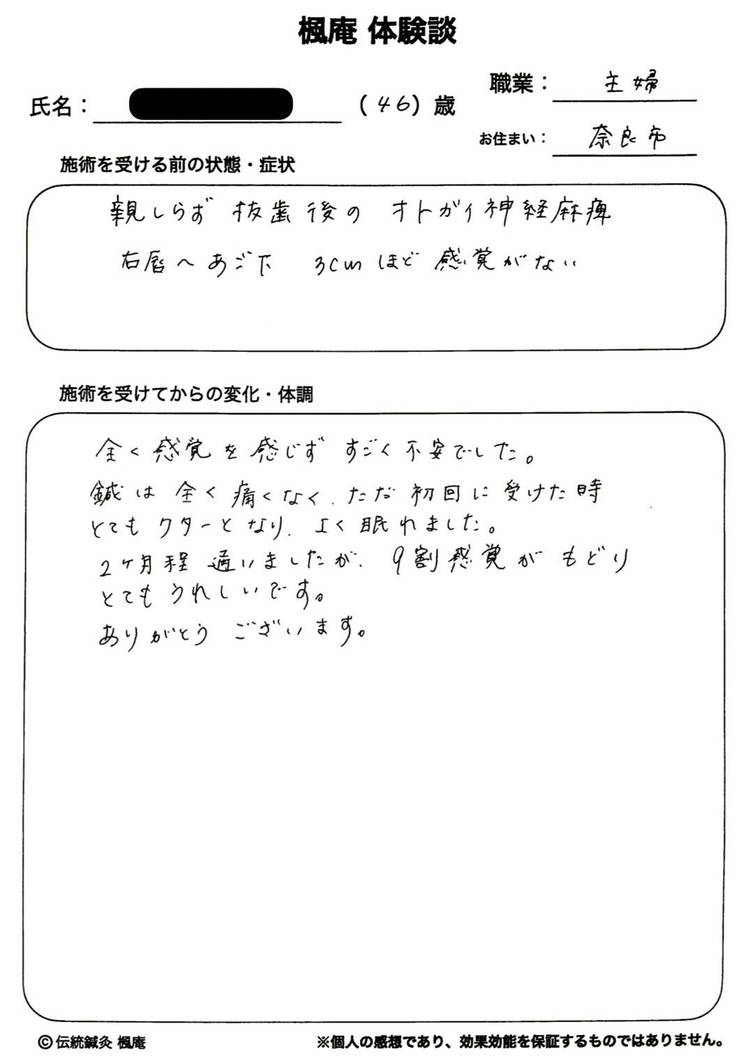 楓庵 体験談
氏名： （46）歳
職業： 主婦
お住まい： 奈良市
施術を受ける前の状態・症状
親しらず 抜歯後の オトガイ神経麻痺
右唇へあご下 3cmほど 感覚がない
施術を受けてからの変化・体調
全く感覚を感じず すごく不安でした。
鍼は全く痛くなく、ただ初回に受けた時
とてもクターとなり、よく眠れました。
2ヶ月程 通いましたが、9割感覚がもどり
とてもうれしいです。
ありがとうございます。
©伝統鍼灸 楓庵
※個人の感想であり、効果効能を保証するものではありません。